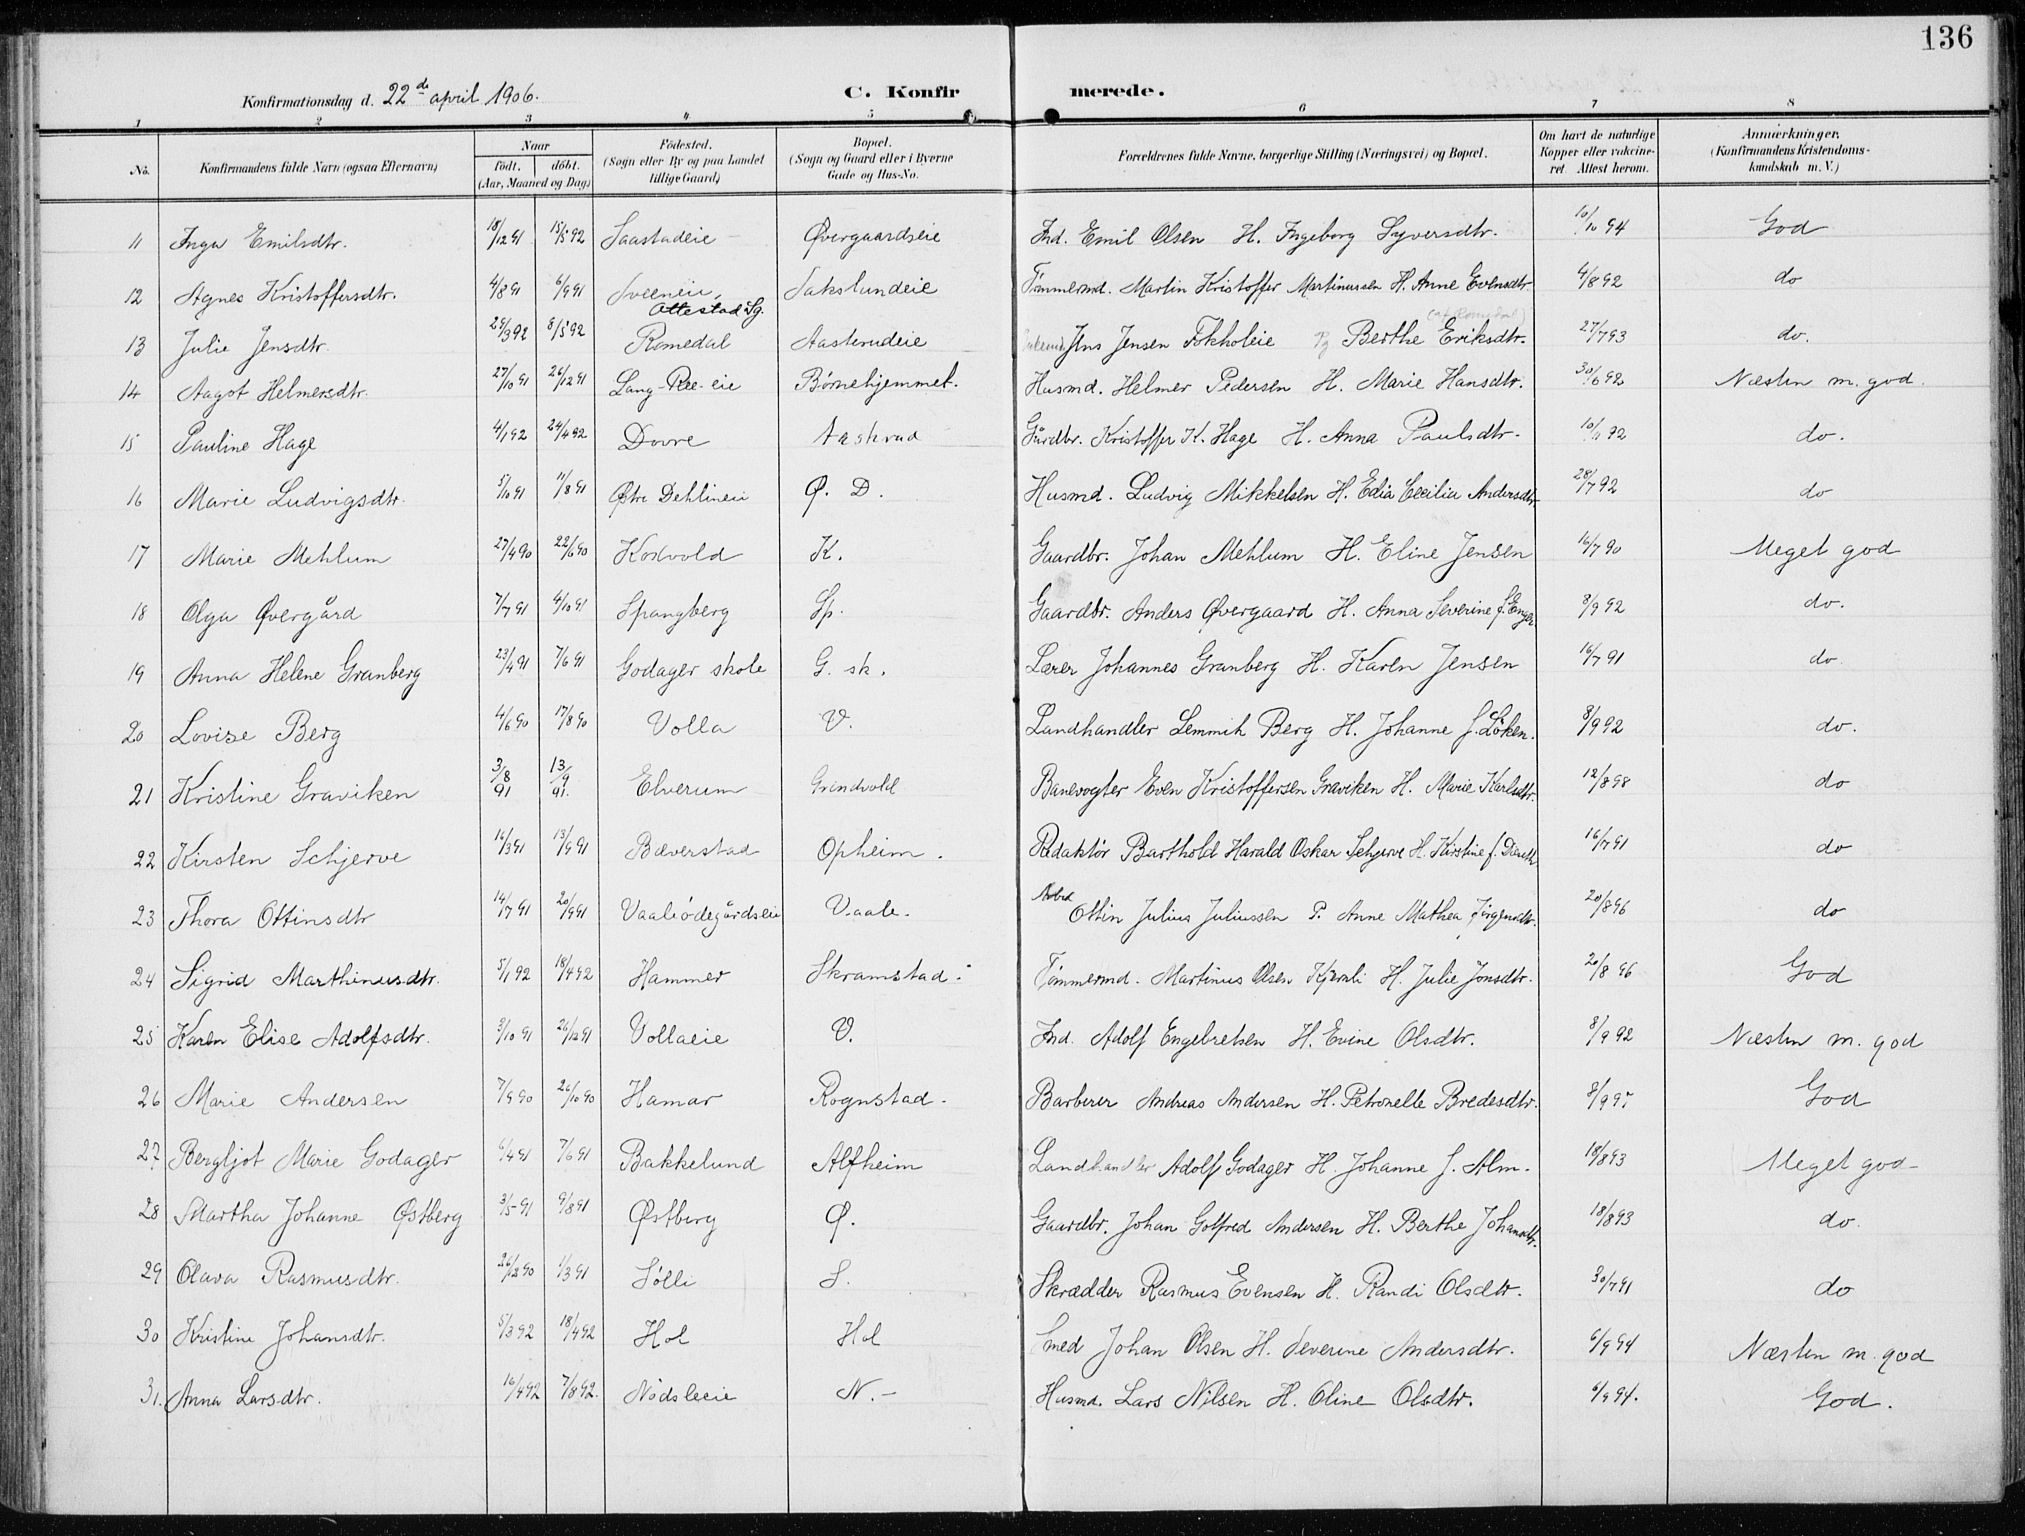 136
Konfirmationsdag d. 22de april 1906. C. Konfirmerede.
1 2 3 4 5 6 7 8
No. Konfirmandens fulde Navn (ogsaa Efternavn) Naar født. døbt. (Aar, Maaned og Dag) Födested. (Sogn eller By og paa Landet tillige Gaard) Bopæl. (Sogn og Gaard eller i Byerne Gade og Hus-No. Forældrenes fulde Navne, borgerlige Stilling (Næringsvei) og Bopæl. Om havt de naturlige Kopper eller vakcineret. Attest herom. Anmærkninger, (Konfirmandens Kristendomskundskab m. V.)
11 Inga Emilsdtr. 18/12 91 15/5 92 Saastadeie Øvergaardseie Ind. Emil Olsen H. Ingeborg Syversdtr. 10/10 94 God
12 Agnes Kristoffersdtr. 4/8 91 6/9 91 Sveeneie, Ottestad Sg. Sakslundeie Tømmermd. Martin Kristoffer Martinussen H. Anne Evensdtr. 4/8 92 do
13 Julie Jensdtr. 29/3 92 8/5 92 Romedal Aasterudeie Jens Jensen Fokholeie Pg Berthe Eriksdtr. 27/7 93 do.
14 Aagot Helmersdtr. 27/10 91 26/12 91 Lang-Ree-eie Børnehjemmet. Husmd. Helmer Pedersen H. Marie Hansdtr. 30/6 92 Næsten m. god.
15 Pauline Hage 4/1 92 24/4 92 Dovre Gårdbr. Kristoffer K. Hage H. Anna Paulsdtr. 92 do.
16 Marie Ludvigsdtr. 5/10 91 11/8 91 Østre Dehlineie Ø. D. Husmd. Ludvig Mikkelsen H. Edia Cecilia Andersdtr. 28/7 92 do
17 Marie Mehlum 27/4 90 22/6 90 Korsvold K. Gaardbr. Johan Mehlum H. Eline Jensen 16/7 90 Meget god
18 Olga Øvergård 7/7 91 4/10 91 Spangberg Sp. Gaardbr. Anders Øvergaard H. Anna Severine f. Enger 8/9 92 do.
19 Anna Helene Granberg 23/4 91 7/6 91 Godager skole G. sk. Lærer Johannes Granberg H. Karen Jensen 16/7 91 do
20 Lovise Berg 4/6 90 17/8 90 Volla V. Landhandler Lemmik Berg H. Johanne f. Løken. 8/9 92 do.
21 Kristine Graviken 3/8 91 13/9 91. Elverum Grindvold Banevogter Even Kristoffersen Graviken H. Marie Karlsdtr. 12/8 98 do
22 Kirsten Schjerve 16/3 91 13/9 91 Bæverstad Opheim. Redaktør Barthold Harald Oskar Schjerve H. Kirstine f. 16/7 91 do
23 Thora Ottinsdtr 14/7 91 20/9 91 Vaaleødegårdseie Vaale. Arbd Ottin Julius Juliussen P. Anne Mathea Jørgensdtr. 20/8 96 do
24 Sigrid Marthinusdtr. 5/1 92 18/4 92 Hammer Skramstad. Tømmermd. Martinus Olsen Kjernli H. Julie Jonsdtr. 20/8 96 God
25 Karen Elise Adolfsdtr. 3/10 91 26/12 91 Vollaeie V. Ind. Adolf Engebretsen H. Evine Olsdtr. 8/9 92 Næsten m. god
26 Marie Andersen 7/9 90 26/10 90 Hamar Rognstad. Barberer Andreas Andersen H. Petronelle Bredesdtr. God
27. Bergljot Marie Godager 6/4 91 7/6 91 Bakkelund Alfheim Landhandler Adolf Godager H. Johanne f. Alm. 18/8 93 Meget god
28 Martha Johanne Østberg 3/5 91 9/8 91 Østberg Ø. Gaardbr. Johan Golfred Andersen H. Berthe Johansdtr. 18/8 93 do.
29 Olava Rasmusdtr. 26/12 90 1/3 91 Sølli S. Skrædder Rasmus Evensen H. Randi Olsdtr. 30/7 91 do
30 Kristine Johansdtr. 5/3 92 18/4 92 Hol Hol Smed Johan Olsen H. Severine Andersdtr. 6/9 94 Næsten m. god
31. Anna Larsdtr. 16/4 92 7/8 92. Nødsleeie N.- Husmd. Lars Nilsen H. Oline Olsdtr. 6/9 94. God.